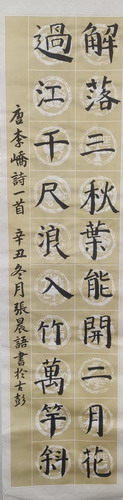 解落三秋葉能開二月花
過江千尺浪入竹萬竿斜
唐李嶠詩一首 辛丑冬月張晨語書於古彭